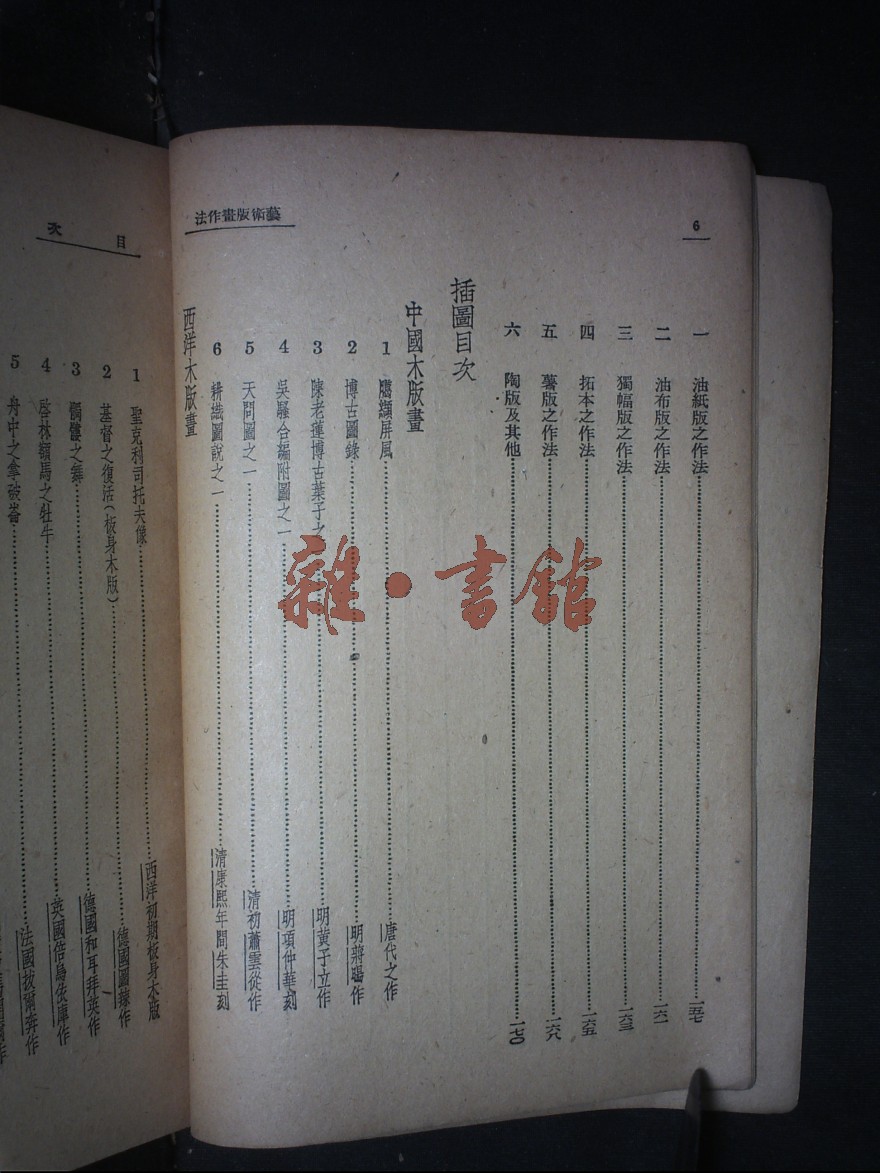 藝術版畫作法
6
一 油紙版之作法 一五七
二 油布版之作法 一六一
三 獨幅版之作法 一六三
四 拓本之作法 一六五
五 薯版之作法 一六八
六 陶版及其他 一七〇
插圖目次
中國木版畫
1 臈纈屏風 唐代之作
2 博古圖錄 明蔣暘作
3 陳老蓮博古葉子之 明黃子立作
4 吳騷合編附圖之一 明項仲華刻
5 天問圖之一 清初蕭雲從作
6 耕織圖說之一 清康熙年間朱圭刻
西洋木版畫
目次
1 聖克利司托夫像 西洋初期板身木版
2 基督之復活(板身木版) 德國圖辣作
3 髑髏之舞 德國和耳拜英作
4 啓林頓馬之牡牛 英國倍烏依庫作
5 舟中之拿破崙 法國拔爾奔作
雜·書館